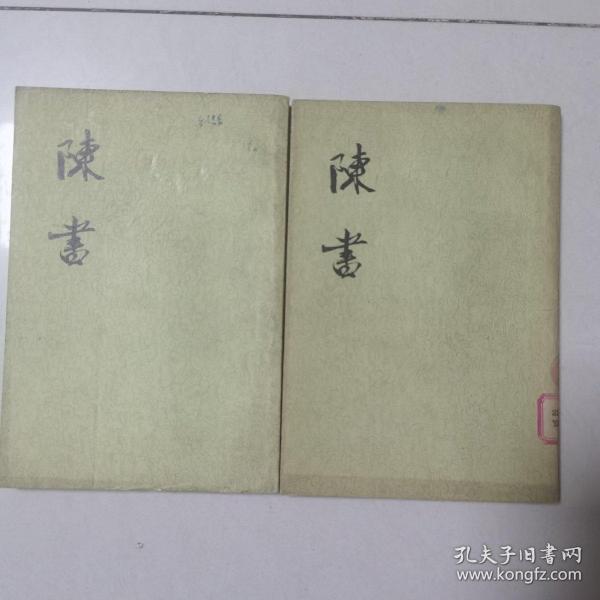 陳
書
陳
書
孔夫子旧書网
www.kongfz.com